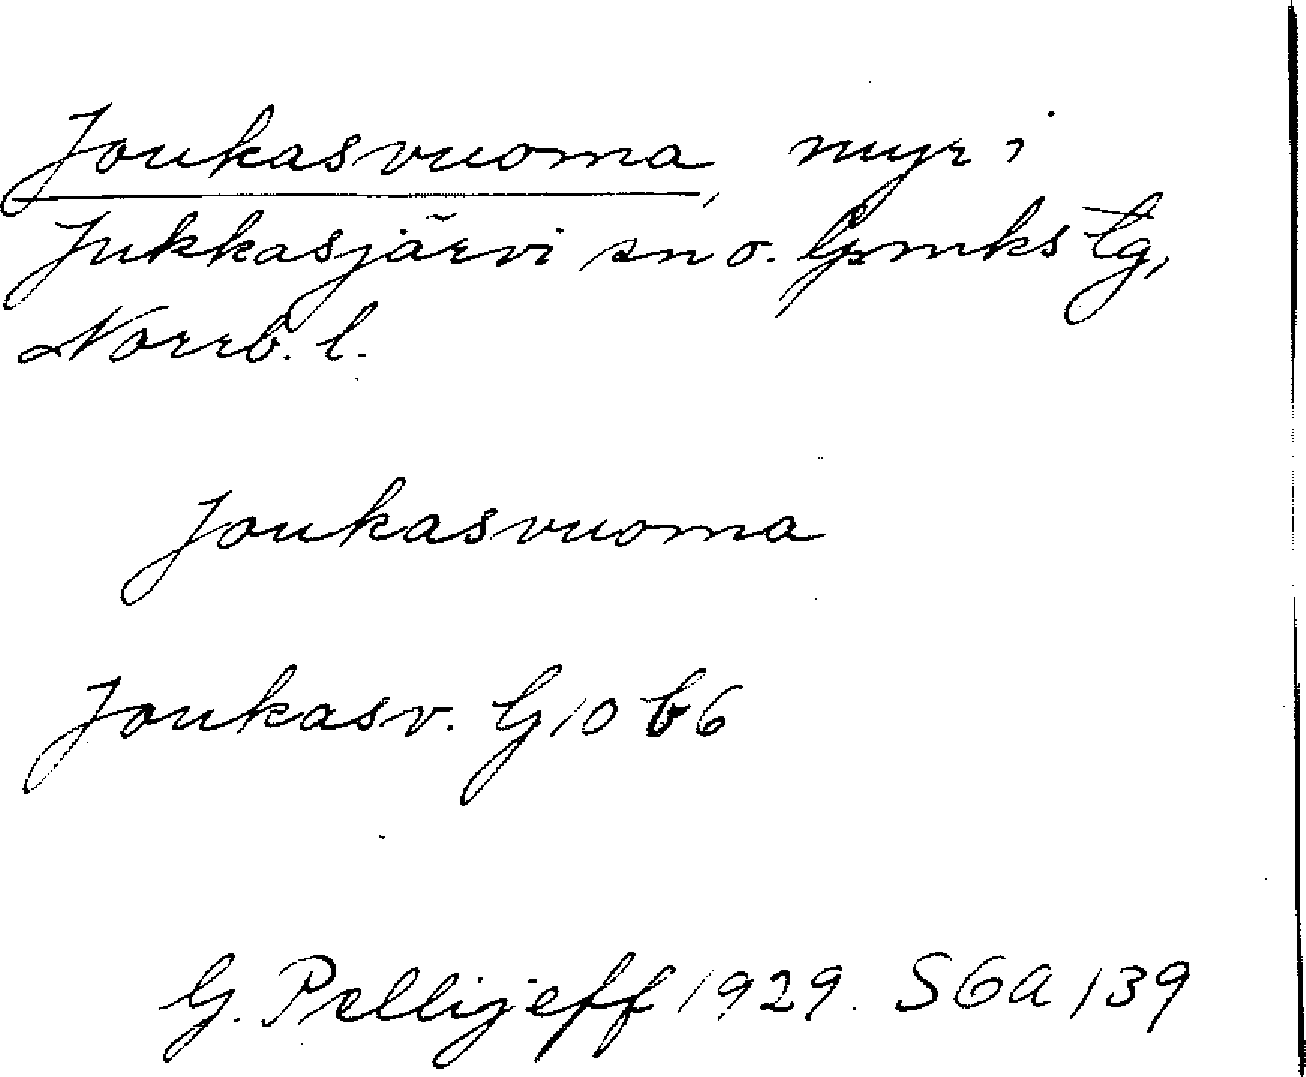 Joukasvuoma, myr i
Jukkasjärvi sn o. lpmks tg,
Norrb. l.
Joukasvuoma
Joukasv. G10 b6
G. Pellijeff 1929. SGA 139